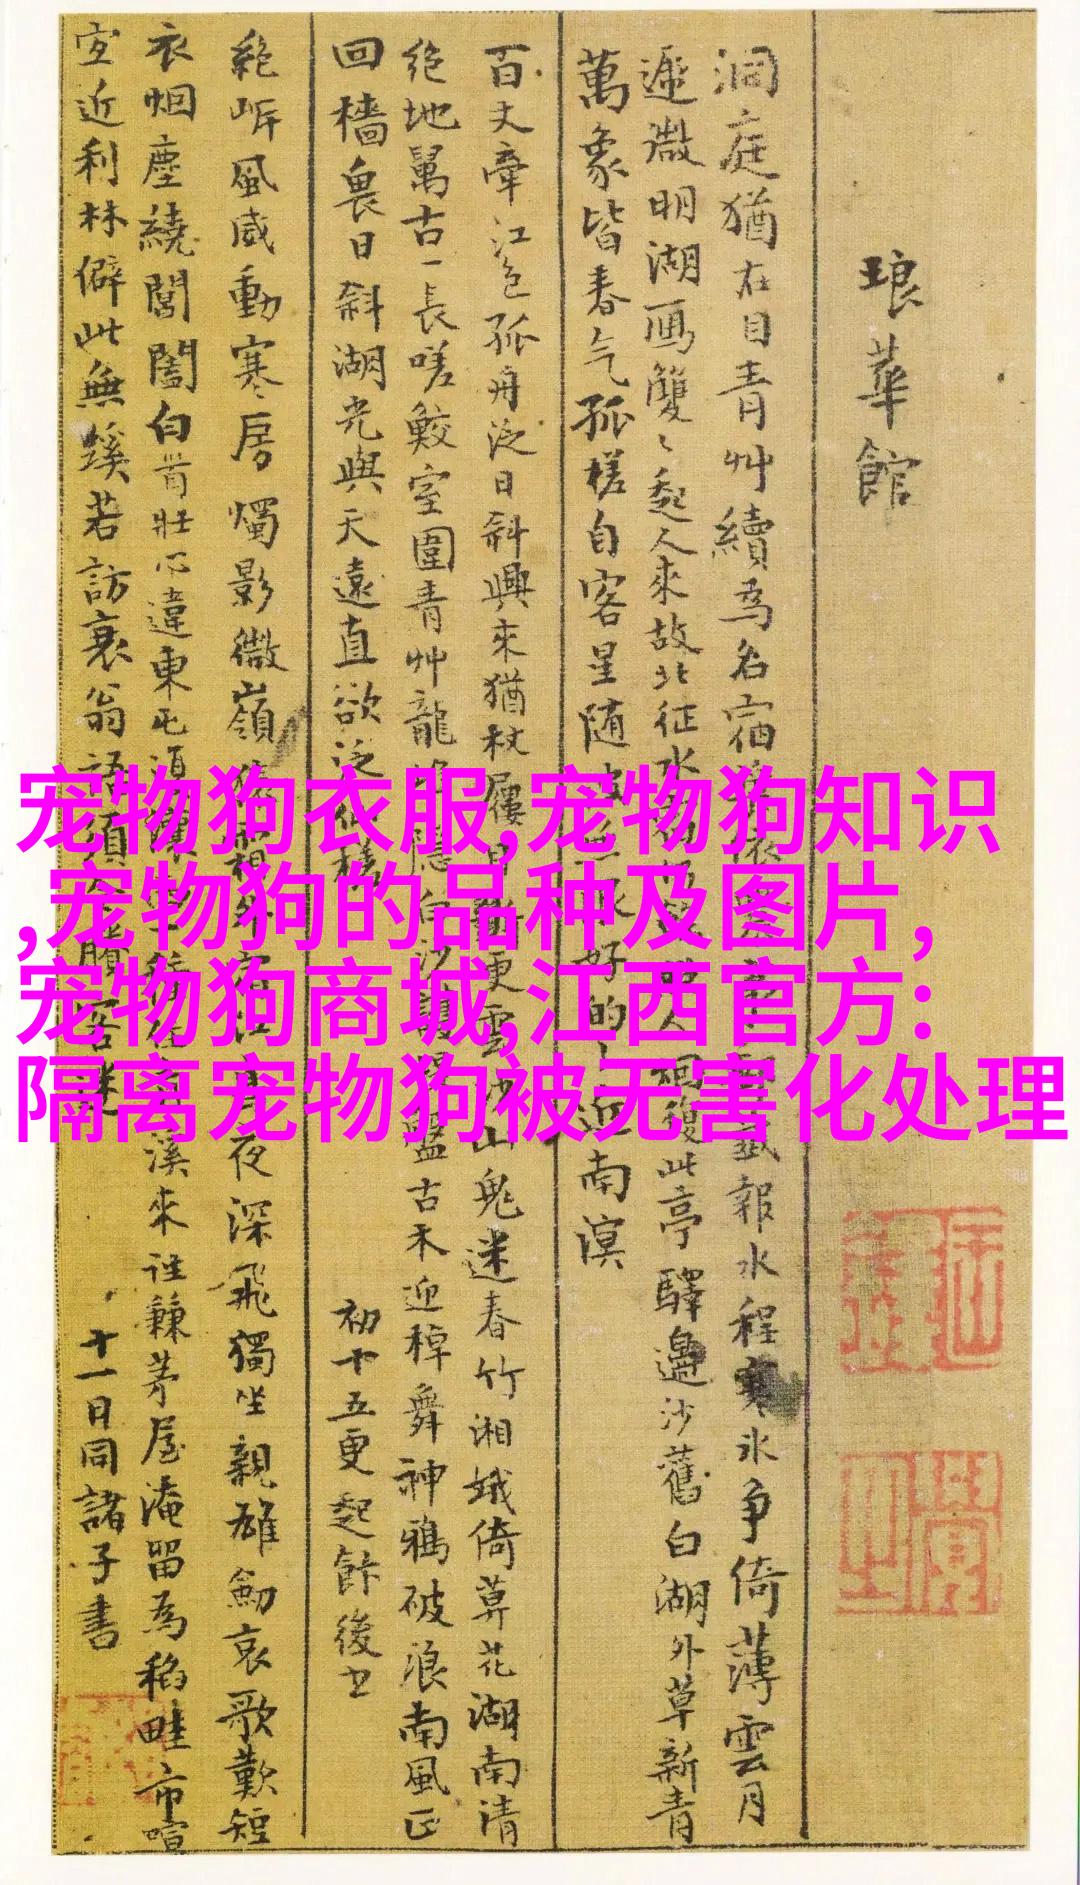 琅華館
洞庭猶在目青艸續為名宿
遞微明湖雁雙〻起人來故北征水
報水程寒冰争倚薄雲月
復此亭驛邊沙舊白湖外草新青
萬象皆春气孤槎自客星随
好的〻近南溟
百丈牽江色孤舟泛日斜興來猶杖屨
更雲沙山鬼迷春竹湘娥倚莫花湖南清
絶地萬古一長嗟鮫室圍青艸龍
隱白沙
盤古木迎棹舞神鴉破浪南風正
回檣畏日斜湖光與天遠直欲泛仙槎
初十五更起飰後书
絶岸風威動寒房燭影微嶺
夜深飛獨坐親雄劒哀歌歎短
衣烟塵繞閶闔白首壯心違東屯
溪來往兼茅屋淹留為稻畦市喧
宜近利林僻此無蹊若訪衰翁語須
十一日同諸子書
宠物狗衣服,宠物狗知识
,宠物狗的品种及图片,
宠物狗商城,江西官方:
隔离宠物狗被无害化处理